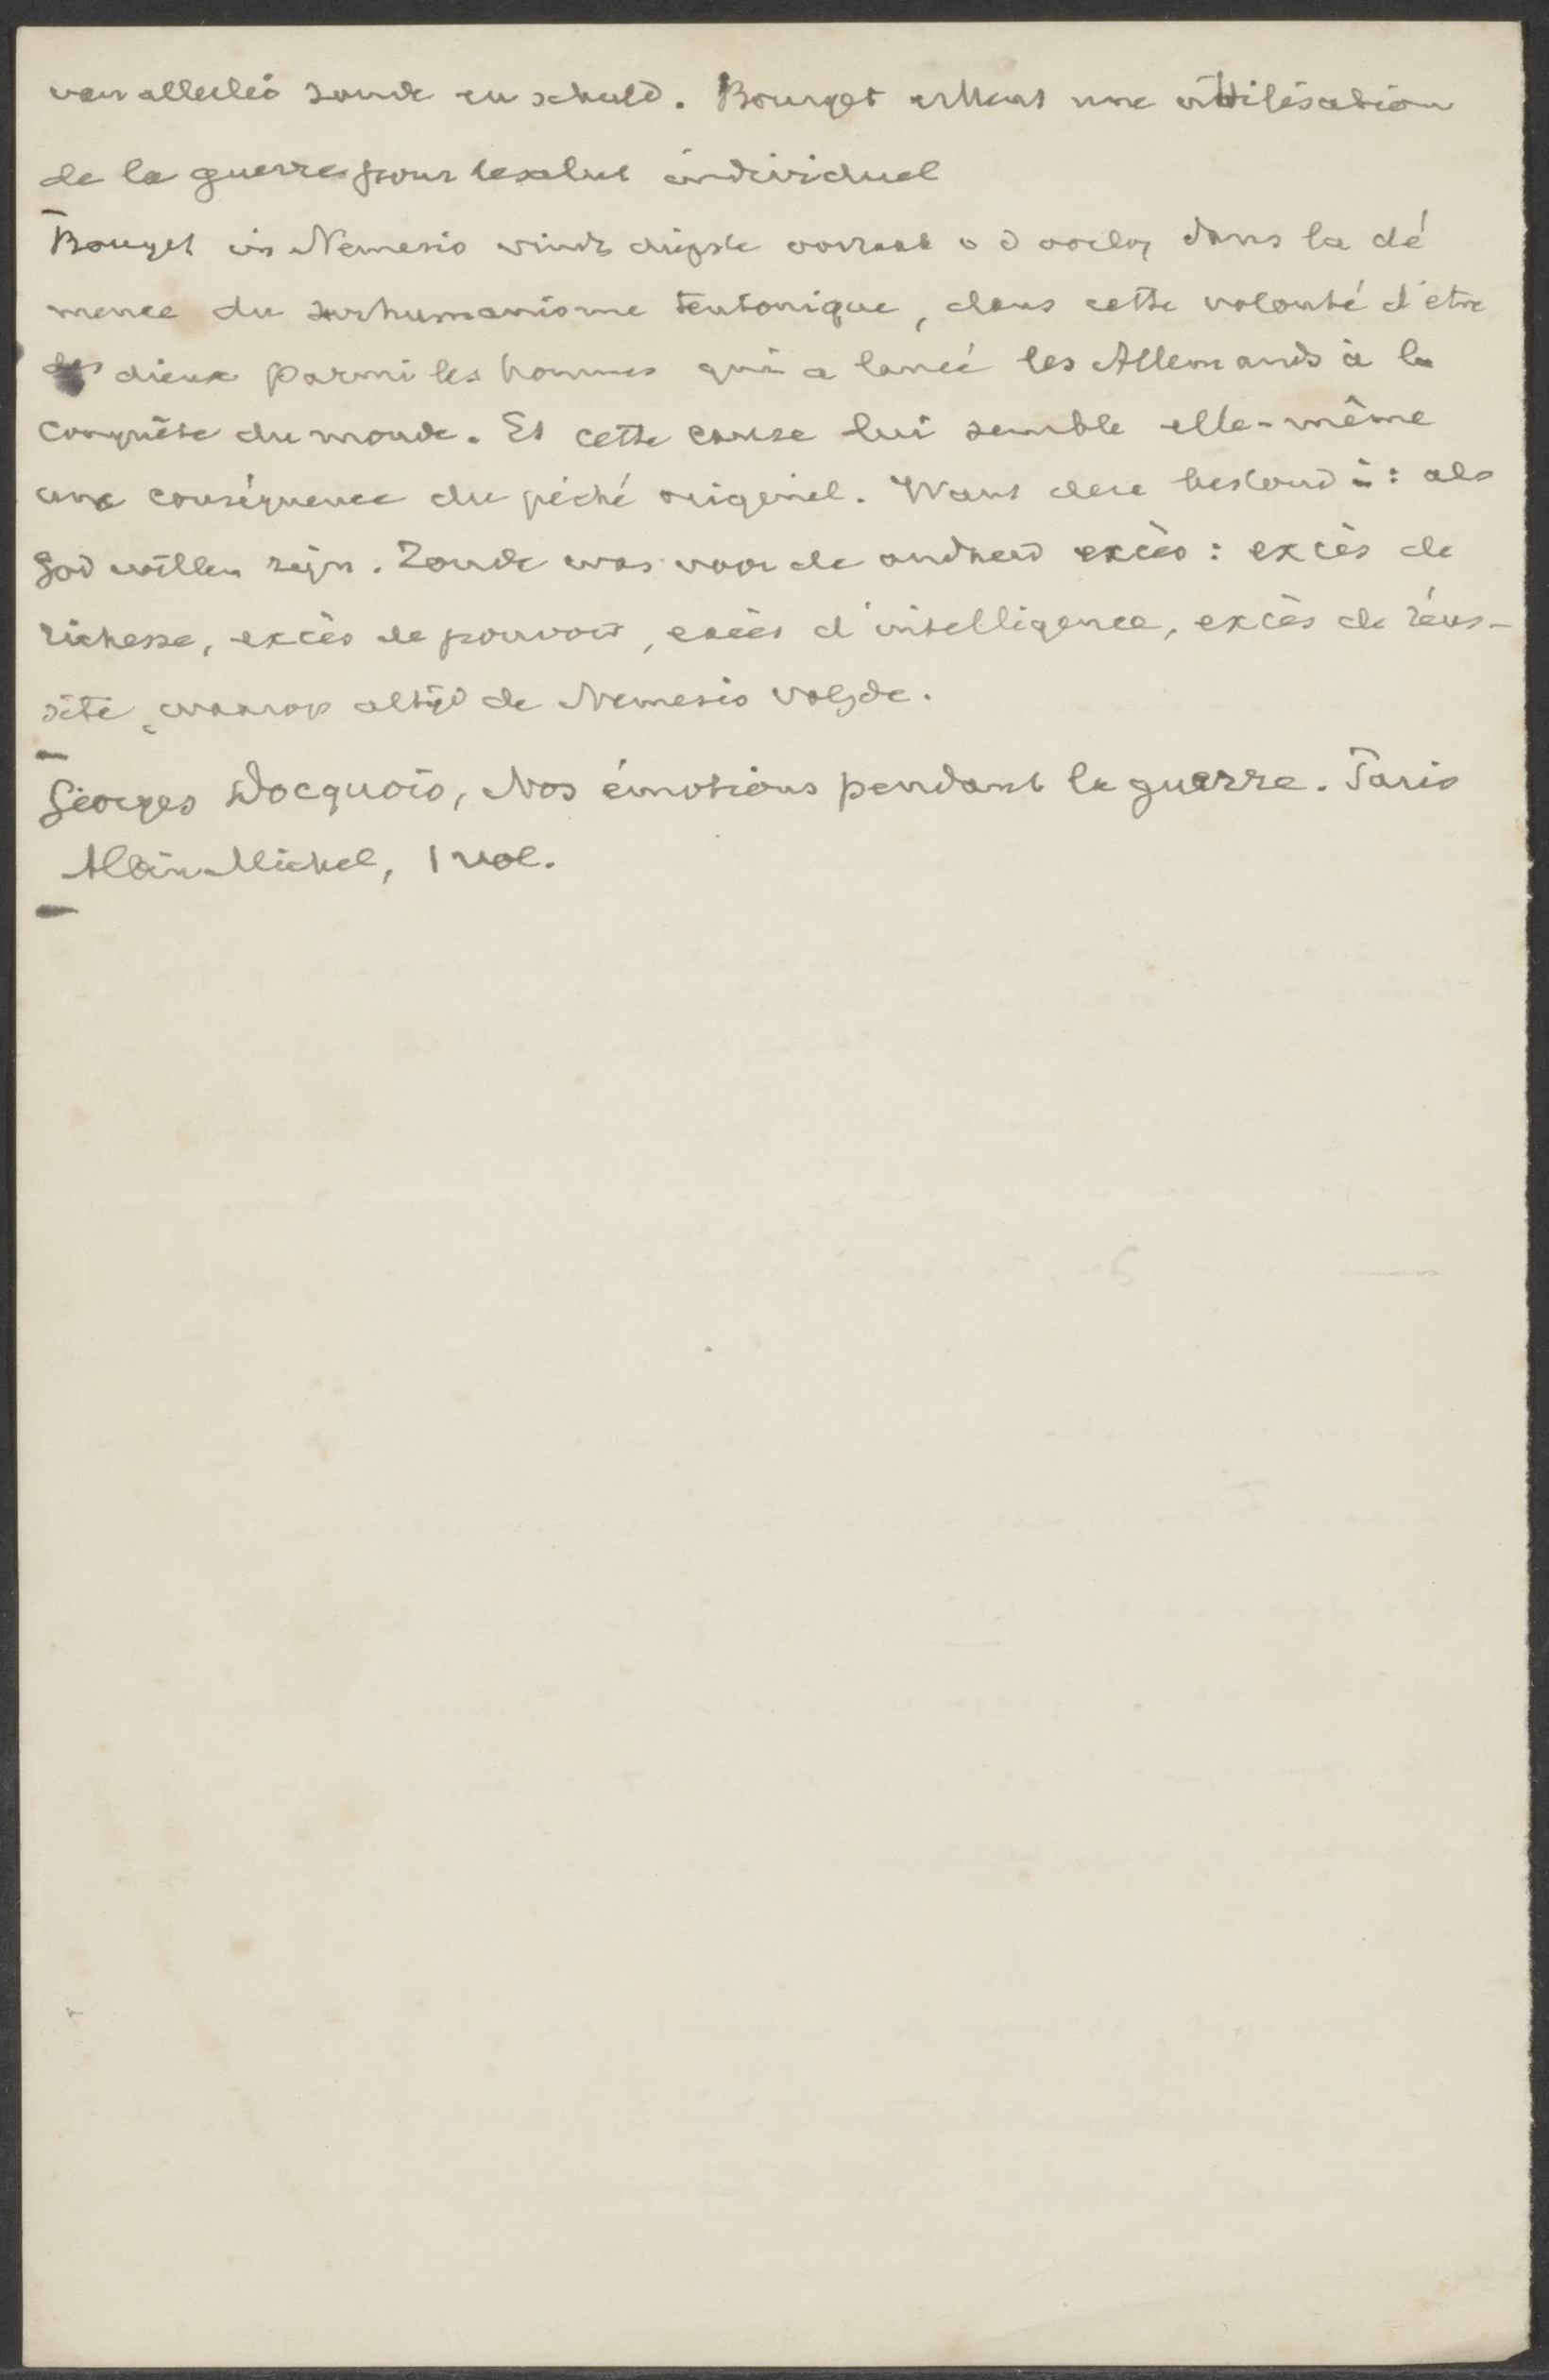 van allerlei zonde en schuld. Bourget erkent une utilisation
de la guerre pour le salut individuel
Bourget in Nemesis vindt diepste oorzaak v d oorlog dans la dé
mence du surhumanisme teutonique, dans cette volonté d'etre
des dieux parmi les hommes qui a lancé les Allemands à la
conquête du monde. Et cette cause lui semble elle-même
une conséquence du péché originel. Want deze bestond in: als
God willen zijn. Zonde was voor de oudheid excès: excès de
richesse, excès de pouvoir, excès d'intelligence, excès de réus-
site, waarop altijd de Nemesis volgde.
Georges Docquois, Nos émotions pendant la guerre. Paris
Albin Michel, 1 vol.